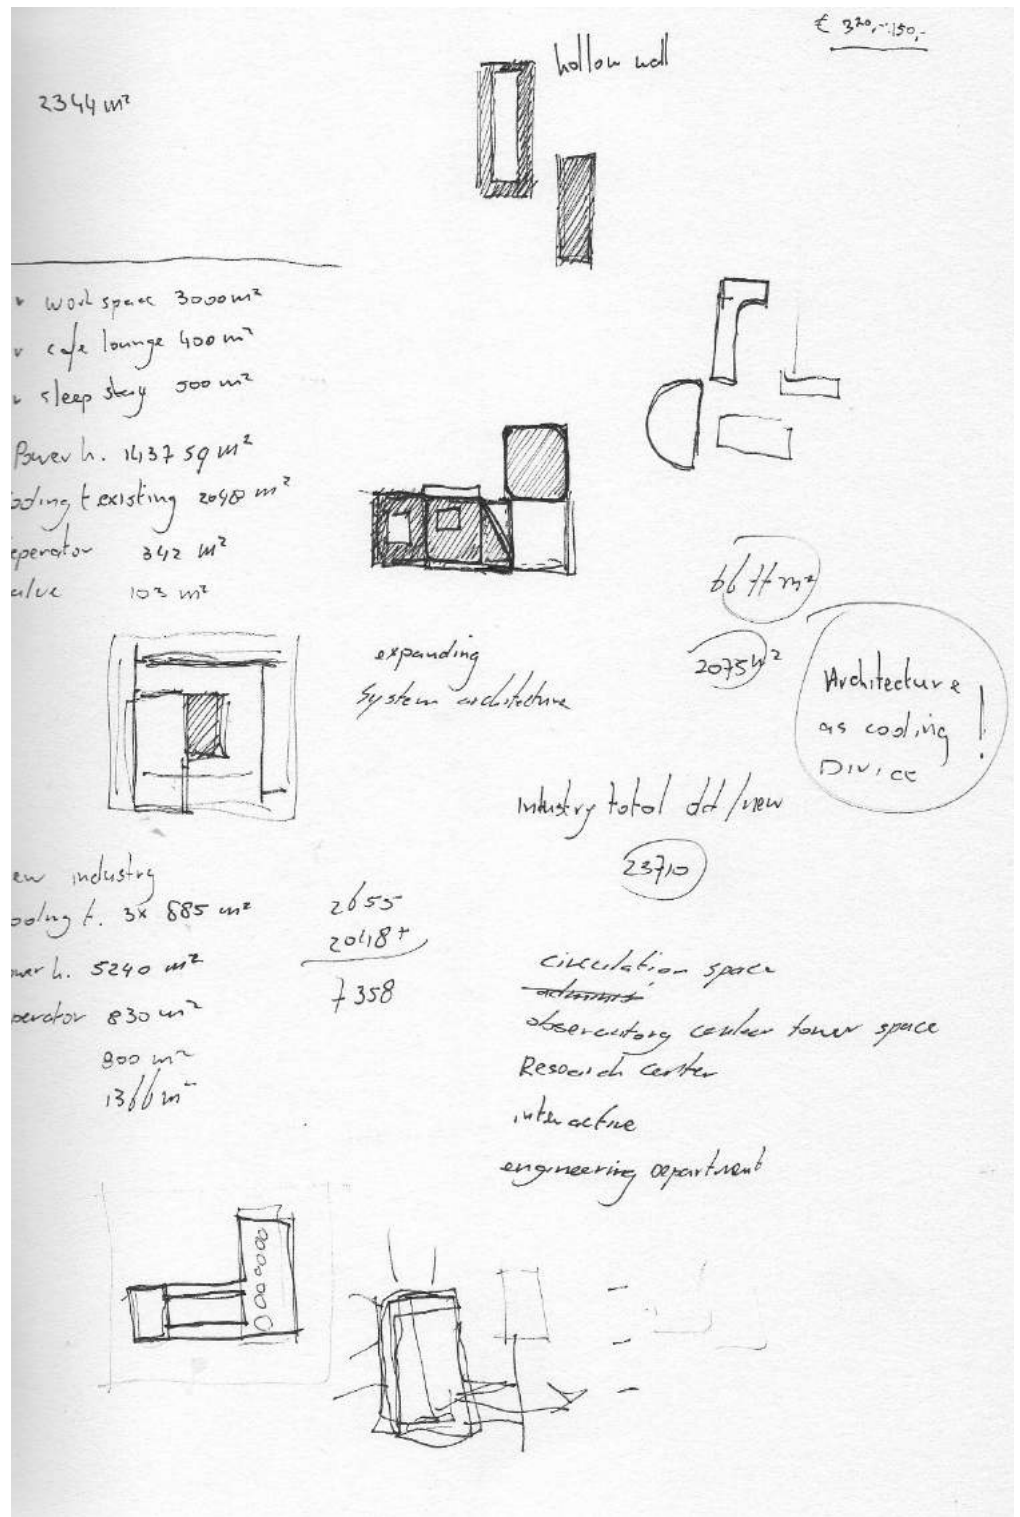 € 320,- 150,-
hollow wall
2344 m²
work space 3000 m²
cafe lounge 400 m²
sleep stay 500 m²
Power h. 1437 59 m²
ooling t existing 2048 m²
eperator 342 m²
alve 103 m²
m²
2073 m²
expanding
System architecture
Architecture
as cooling
Divice
!
Industry total old/new
23710
ew industry
ooling t. 3x 885 m²
ower h. 5240 m²
perator 830 m²
800 m²
1366 m²
2655
2048 +
7358
circulation space
adminis
observatory center tower space
Research center
interactive
engineering department